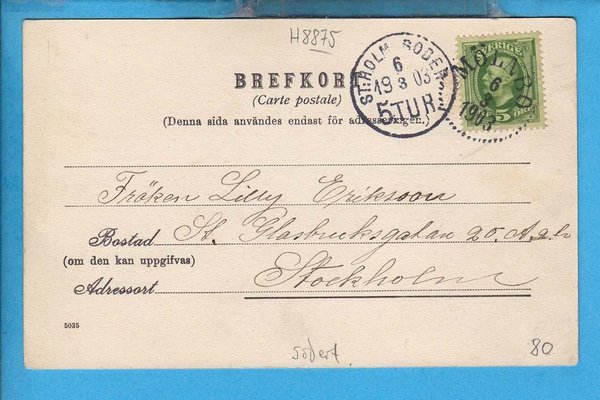 H8875
BREFKORT
(Carte postale)
(Denna sida användes endast för adressen.)
ST:HOLM SÖDER
6
19 3 03
5TUR
SVERIGE
5
MÖLNBO
6
3
1903
Fröken Lilly Eriksson
Bostad St. Glasbruksgatan 20. A. ö. h.
(om den kan uppgifvas)
Stockholm
Adressort
5035
södert.
80